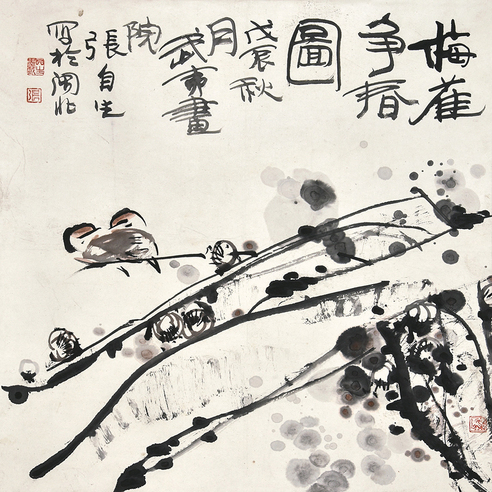 梅雀
争春
圖
戊辰秋
月
武夷畫
院
張自生
寫於閩北